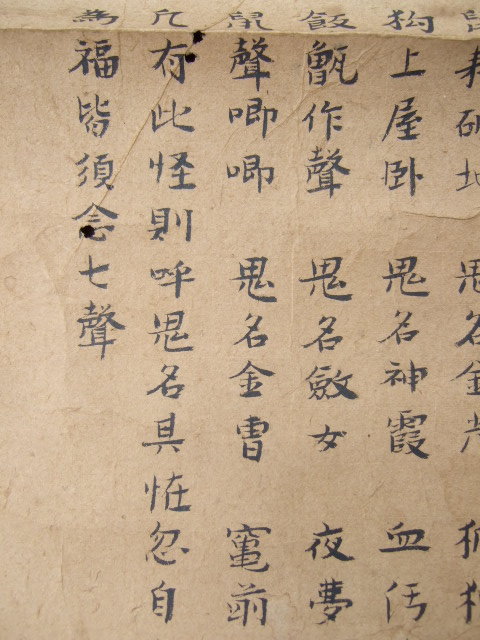 狗上屋卧　鬼名神霞　血污
飯甑作聲　鬼名斂女　夜夢
鼠聲唧唧　鬼名金曹　竈前
凡有此怪則呼鬼名具怪忽自
為福皆須念七聲